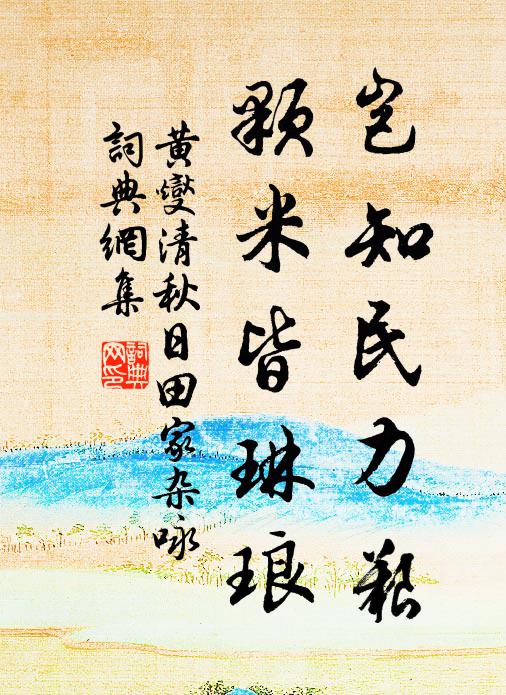 岂知民力艱
顆米皆琳琅
黄燮清秋日田家杂咏
詞典網集
詞典網印